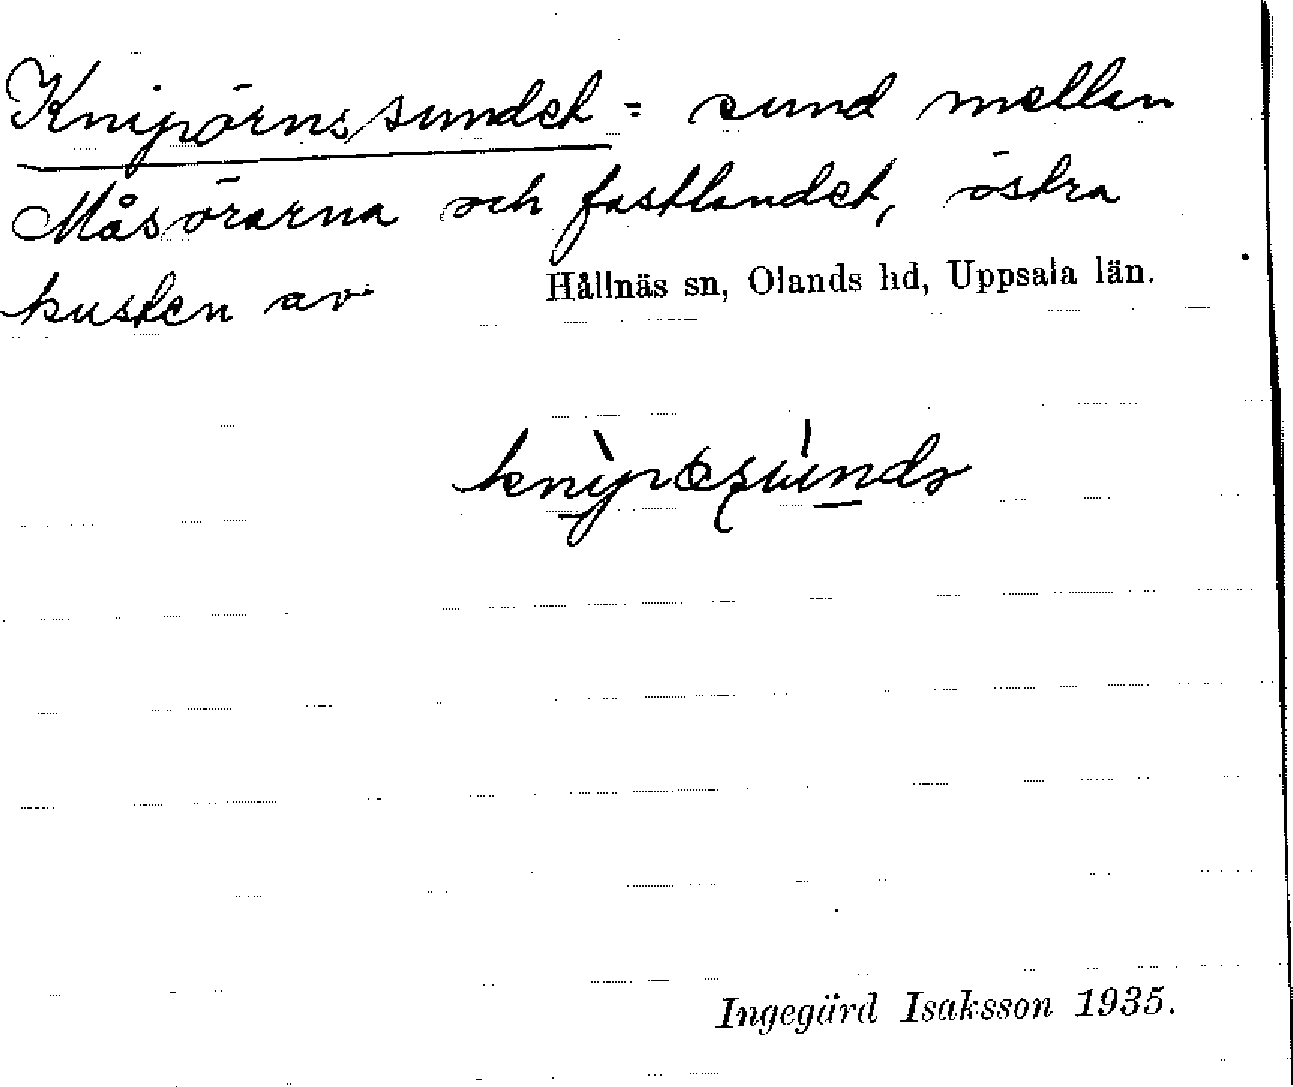 Knipörnssundet = sund mellan
Måsörarna och fastlandet, östra
kusten av Hållnäs sn, Olands hd, Uppsala län.
Ingegärd Isaksson 1935.